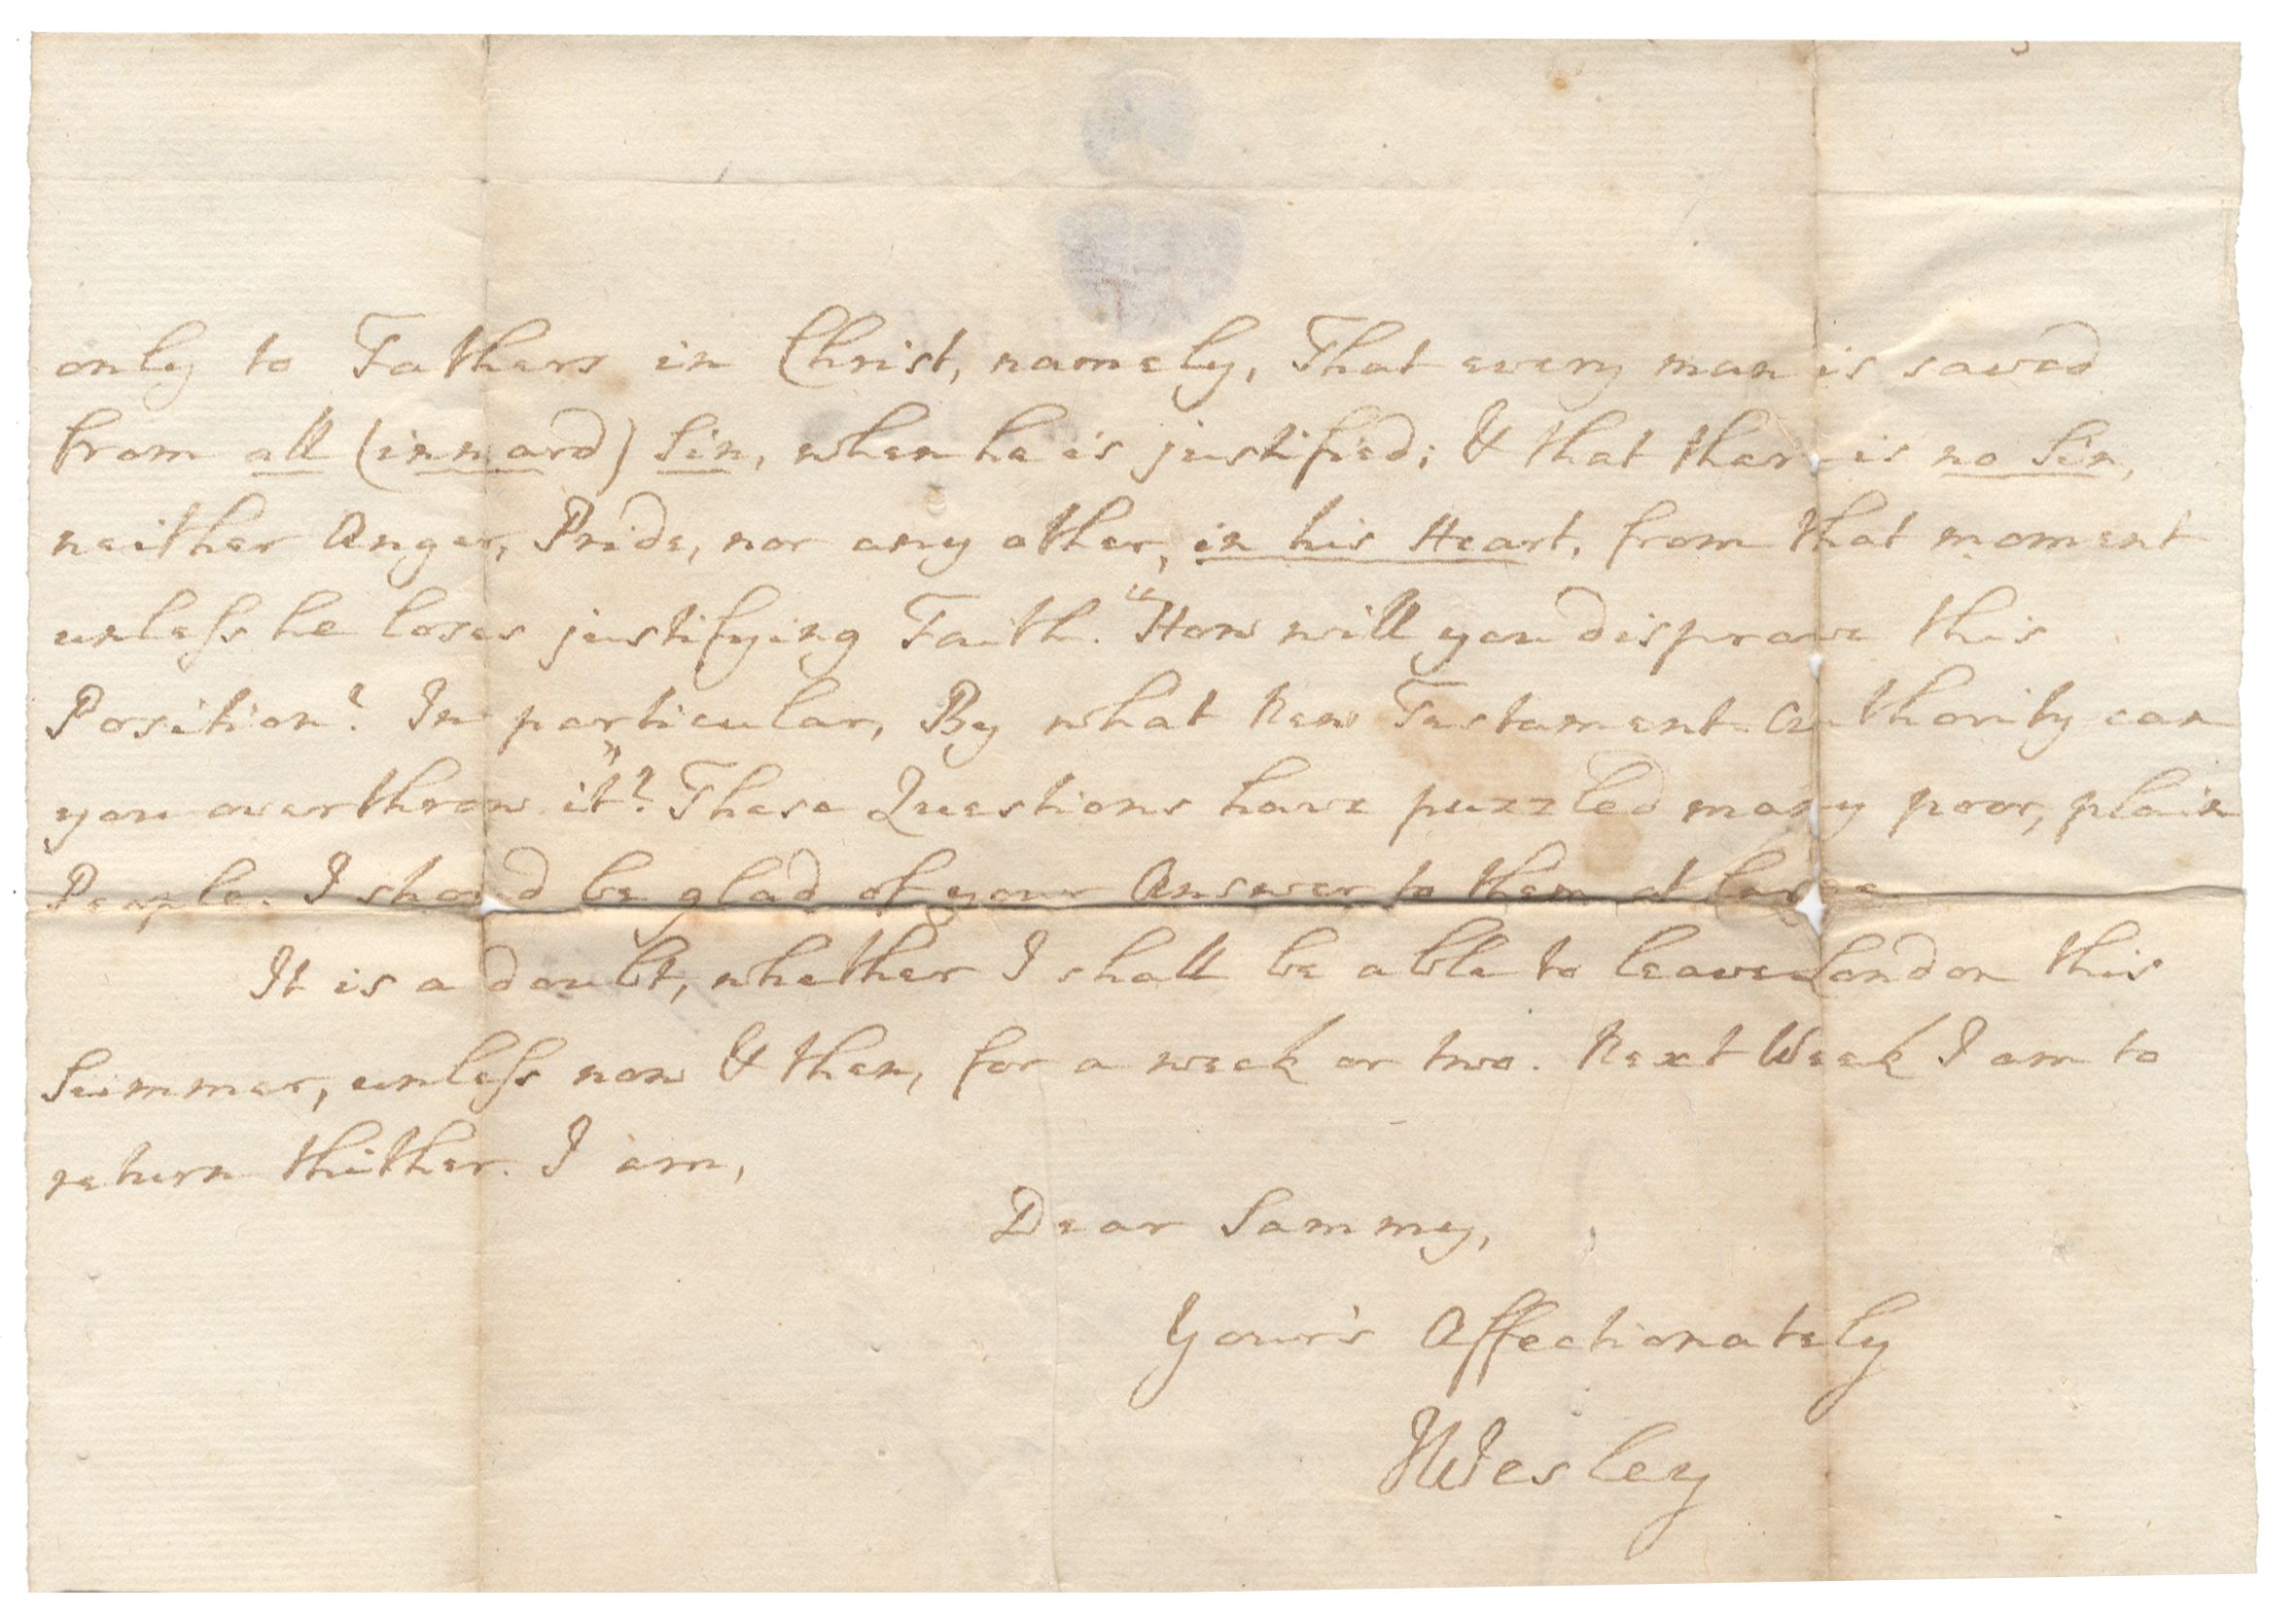 only to Fathers in Christ, namely, That every man is saved
from all (inward) Sin, when he is justified; & that there is no Sin,
neither Anger, Pride, nor any other, in his Heart, from that moment
unless he loses justifying Faith. "How will you disprove this
Position? In particular, By what New Testament Authority can
you overthrow it"? These Questions have puzzled many poor, plain
People. I shoud be glad of your Answer to them at large.
It is a doubt, whether I shall be able to leave London this
Summer, unless now & then, for a week or two. Next Week I am to
return thither. I am,
Dear Sammy,
Your's Affectionately
JWesley